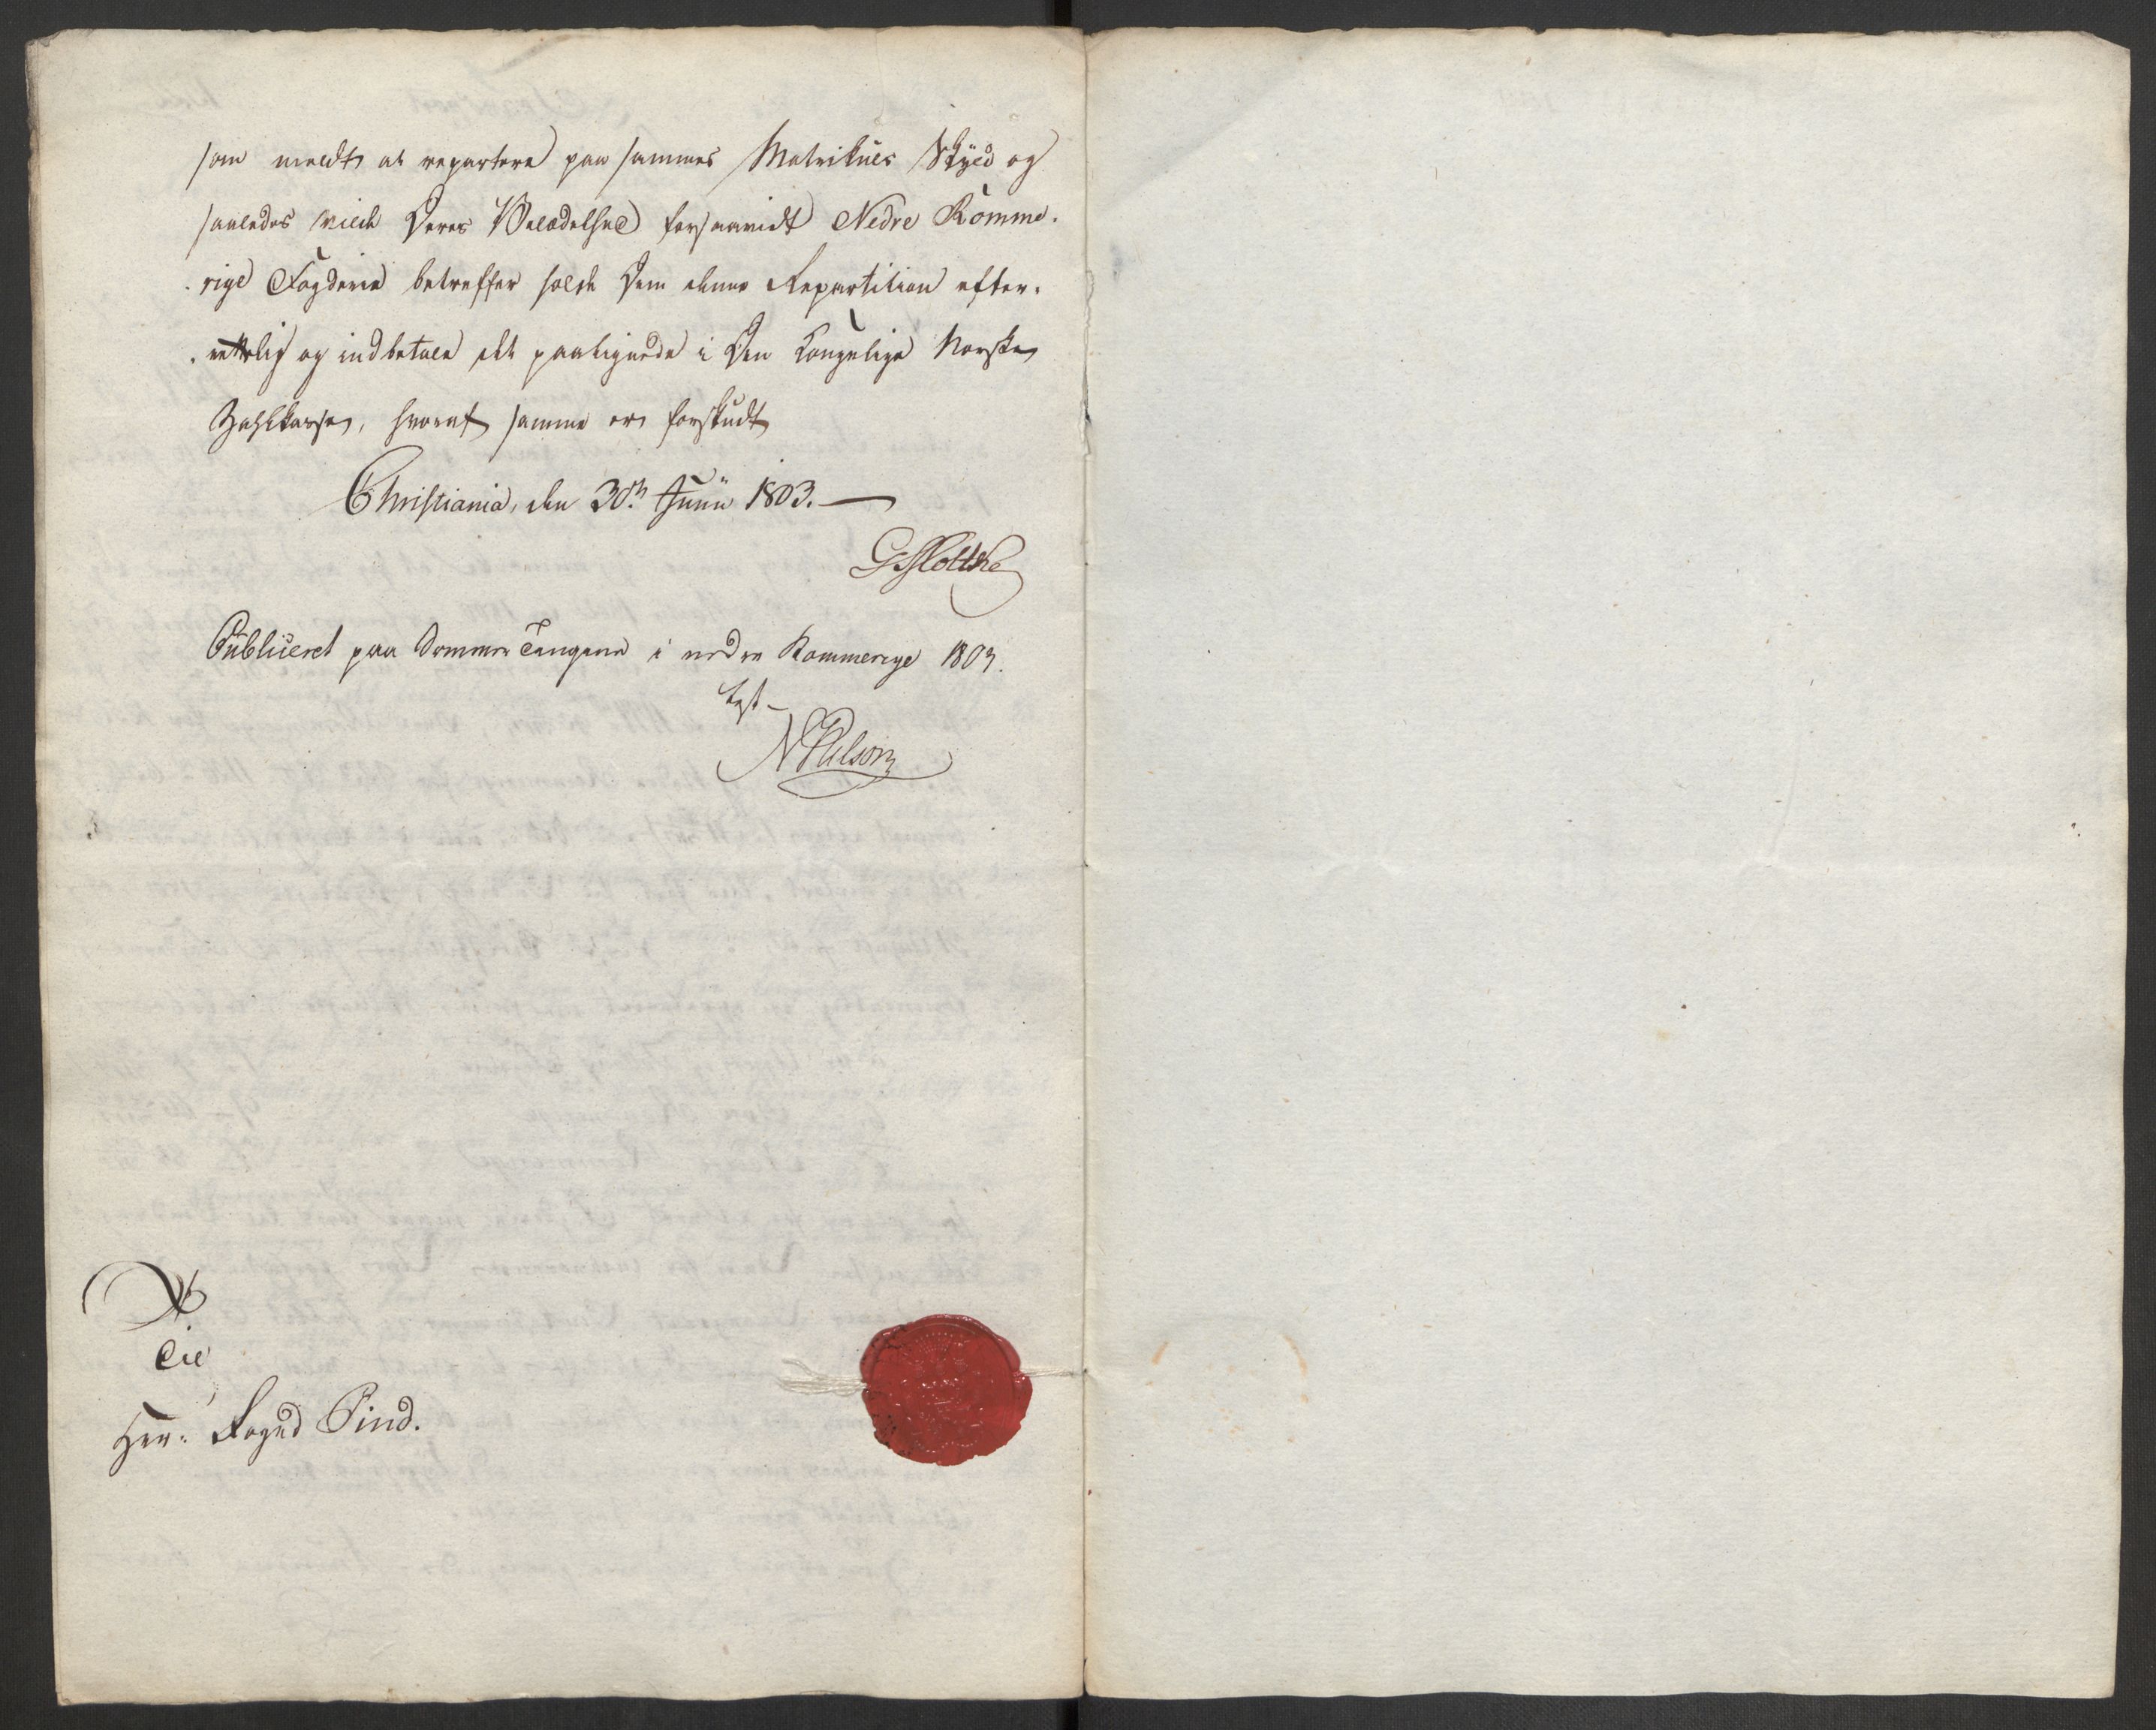 som meldt at repartere paa sammes Matrikuls Skyld og
saaledes vilde Deres Velædelhed forsaavidt Nedre Romme-
rige Fogderie betreffer holde Dem denne Repartition efter-
rettelig og indbetale det paalignede i Den Kongelige Norske
Zahlkasse, hvoraf samme er forskudt
Christiania, den 30te Junii 1803.
G Moltke
Publiceret paa Sommer Tingene i nedre Rommerige 1803.
test
N
Til
Herr Foged Pind.